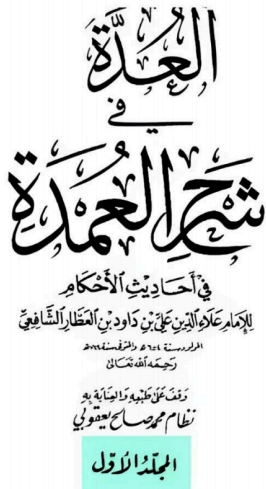 العُدَّة
في
شَرْحِ العُمْدَةِ
فِي أَحَادِيثِ الأَحْكَامِ
لِلإِمَامِ عَلَاءِ الدِّينِ عَلِيِّ بْنِ دَاودَ بْنِ العَطَّارِ الشَّافِعِيِّ
المولود سنة ٦٥٤هـ والمتوفى سنة ٧٢٤هـ
رَحِمَهُ اللهُ تَعَالَى
وَقَفَ عَلَى طَبْعِهِ وَالعِنَايَةِ بِهِ
نظام محمد صالح يعقوبي
المجَلّدُ الأوّل